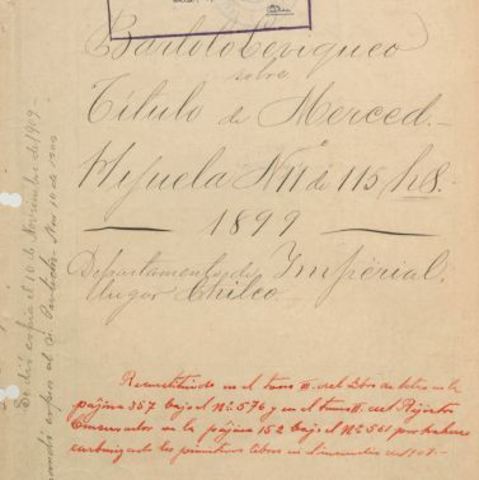 Bartolo Ceviqueo
sobre
Título de Merced.—
Hijuela N 11 de 115 hs.—
1899
Departamento de Imperial.
Lugar Chilco
Reconstituido en el tomo II. del Libro de actas en la
página 357 bajo el Nº 576 y en el tomo II. del Rejistro
Conservador en la pájina 152 bajo el Nº 561 por haberse
carbonizado los primitivos libros en el incendio de 1908.—
Se dió copia el 10 de Noviembre de 1909—
copia al Nov 10 de 1909